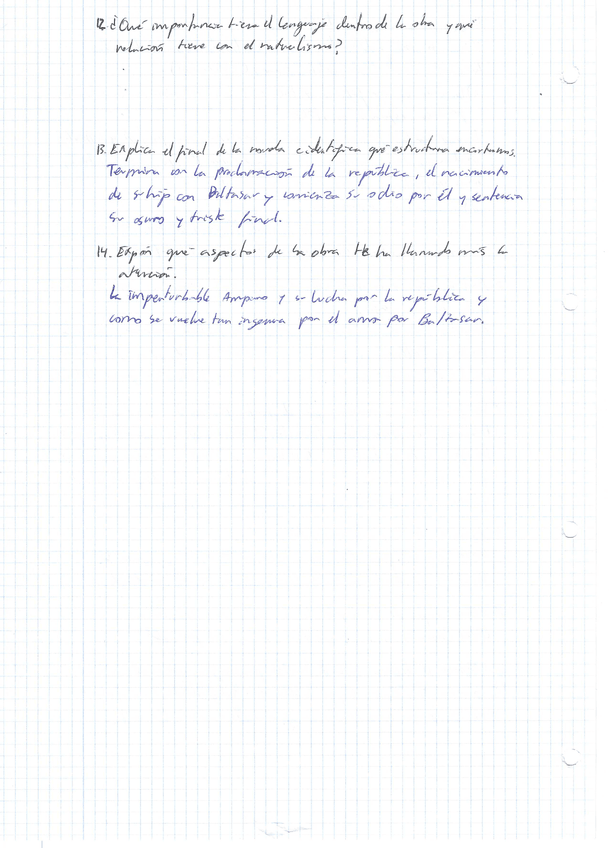 12. ¿Qué importancia tiene el lenguaje dentro de la obra y qué
relación tiene con el naturalismo?
13. Explica el final de la novela e identifica qué estructura encontramos.
Termina con la proclamación de la república, el nacimiento
de su hijo con Baltasar y comienza su odio por él y sentencia
su oscuro y triste final.
14. Expón qué aspectos de la obra te ha llamado más la
atención.
La imperturbable Amparo y su lucha por la república y
como se vuelve tan ingenua por el amor por Baltasar.